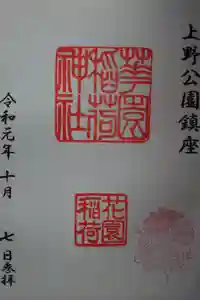 上野公園鎮座
華園
稲荷
神社
花園
稲荷
令和元年十月七日参拝